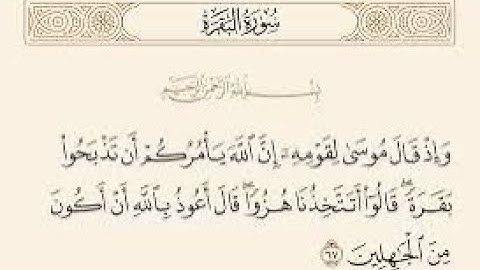 سُورَةُ البَقَرَةِ
بِسْمِ اللَّهِ الرَّحْمَٰنِ الرَّحِيمِ
وَإِذْ قَالَ مُوسَىٰ لِقَوْمِهِۦٓ إِنَّ ٱللَّهَ يَأْمُرُكُمْ أَن تَذْبَحُوا۟
بَقَرَةً ۖ قَالُوٓا۟ أَتَتَّخِذُنَا هُزُوًا ۖ قَالَ أَعُوذُ بِٱللَّهِ أَنْ أَكُونَ
مِنَ ٱلْجَٰهِلِينَ ٦٧